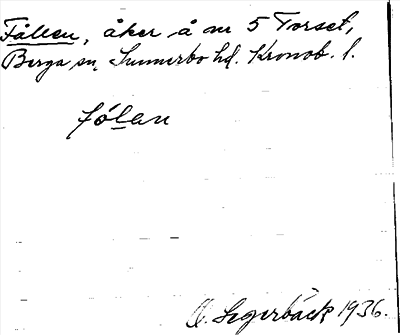 Fållen, åker å nr 5 Torset,
Berga sn, Sunnerbo hd. Kronob. l.
fólan
O. Segerbäck 1936.